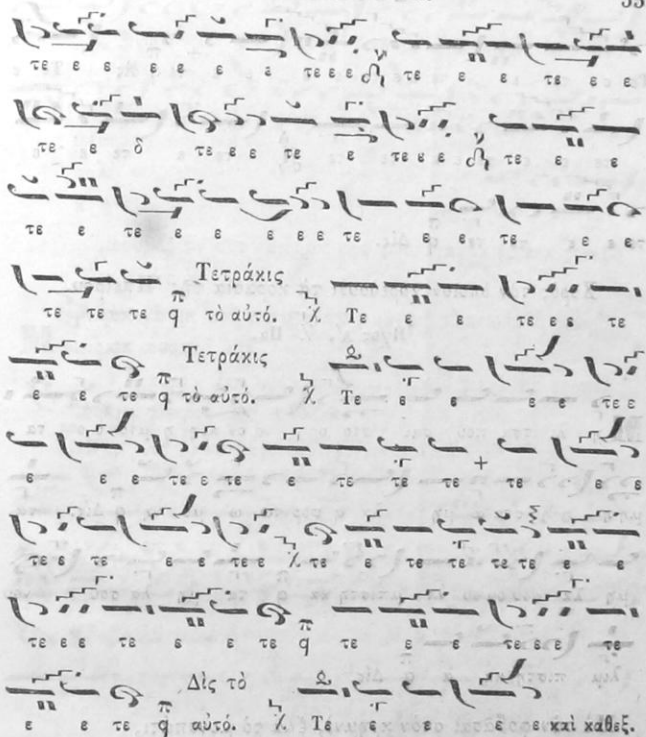 τε ε ε ε ε ε ε τε ε ε τε ε ε τε ε ε
τε ε δ τε ε ε τε ε τε ε ε τε ε ε
τε ε τε ε ε ε ε ε τε ε ε τε ε
Τετράκις
τε τε τε q τὸ αὐτό. χ Τε ε ε τε ε ε τε
Τετράκις
ε ε τε q τὸ αὐτό. χ Τε ε ε ε ε τε ε
ε ε ε τε ε τε ε τε τε τε τε ε ε
τε ε τε ε ε τε ε χ τε ε τε τε τε τε ε ε
τε ε ε τε ε ε τε q τε ε ε τε ε ε τε
Δὶς τὸ
ε ε τε q αὐτό. χ Τε ε ε ε ε καὶ καθεξ.